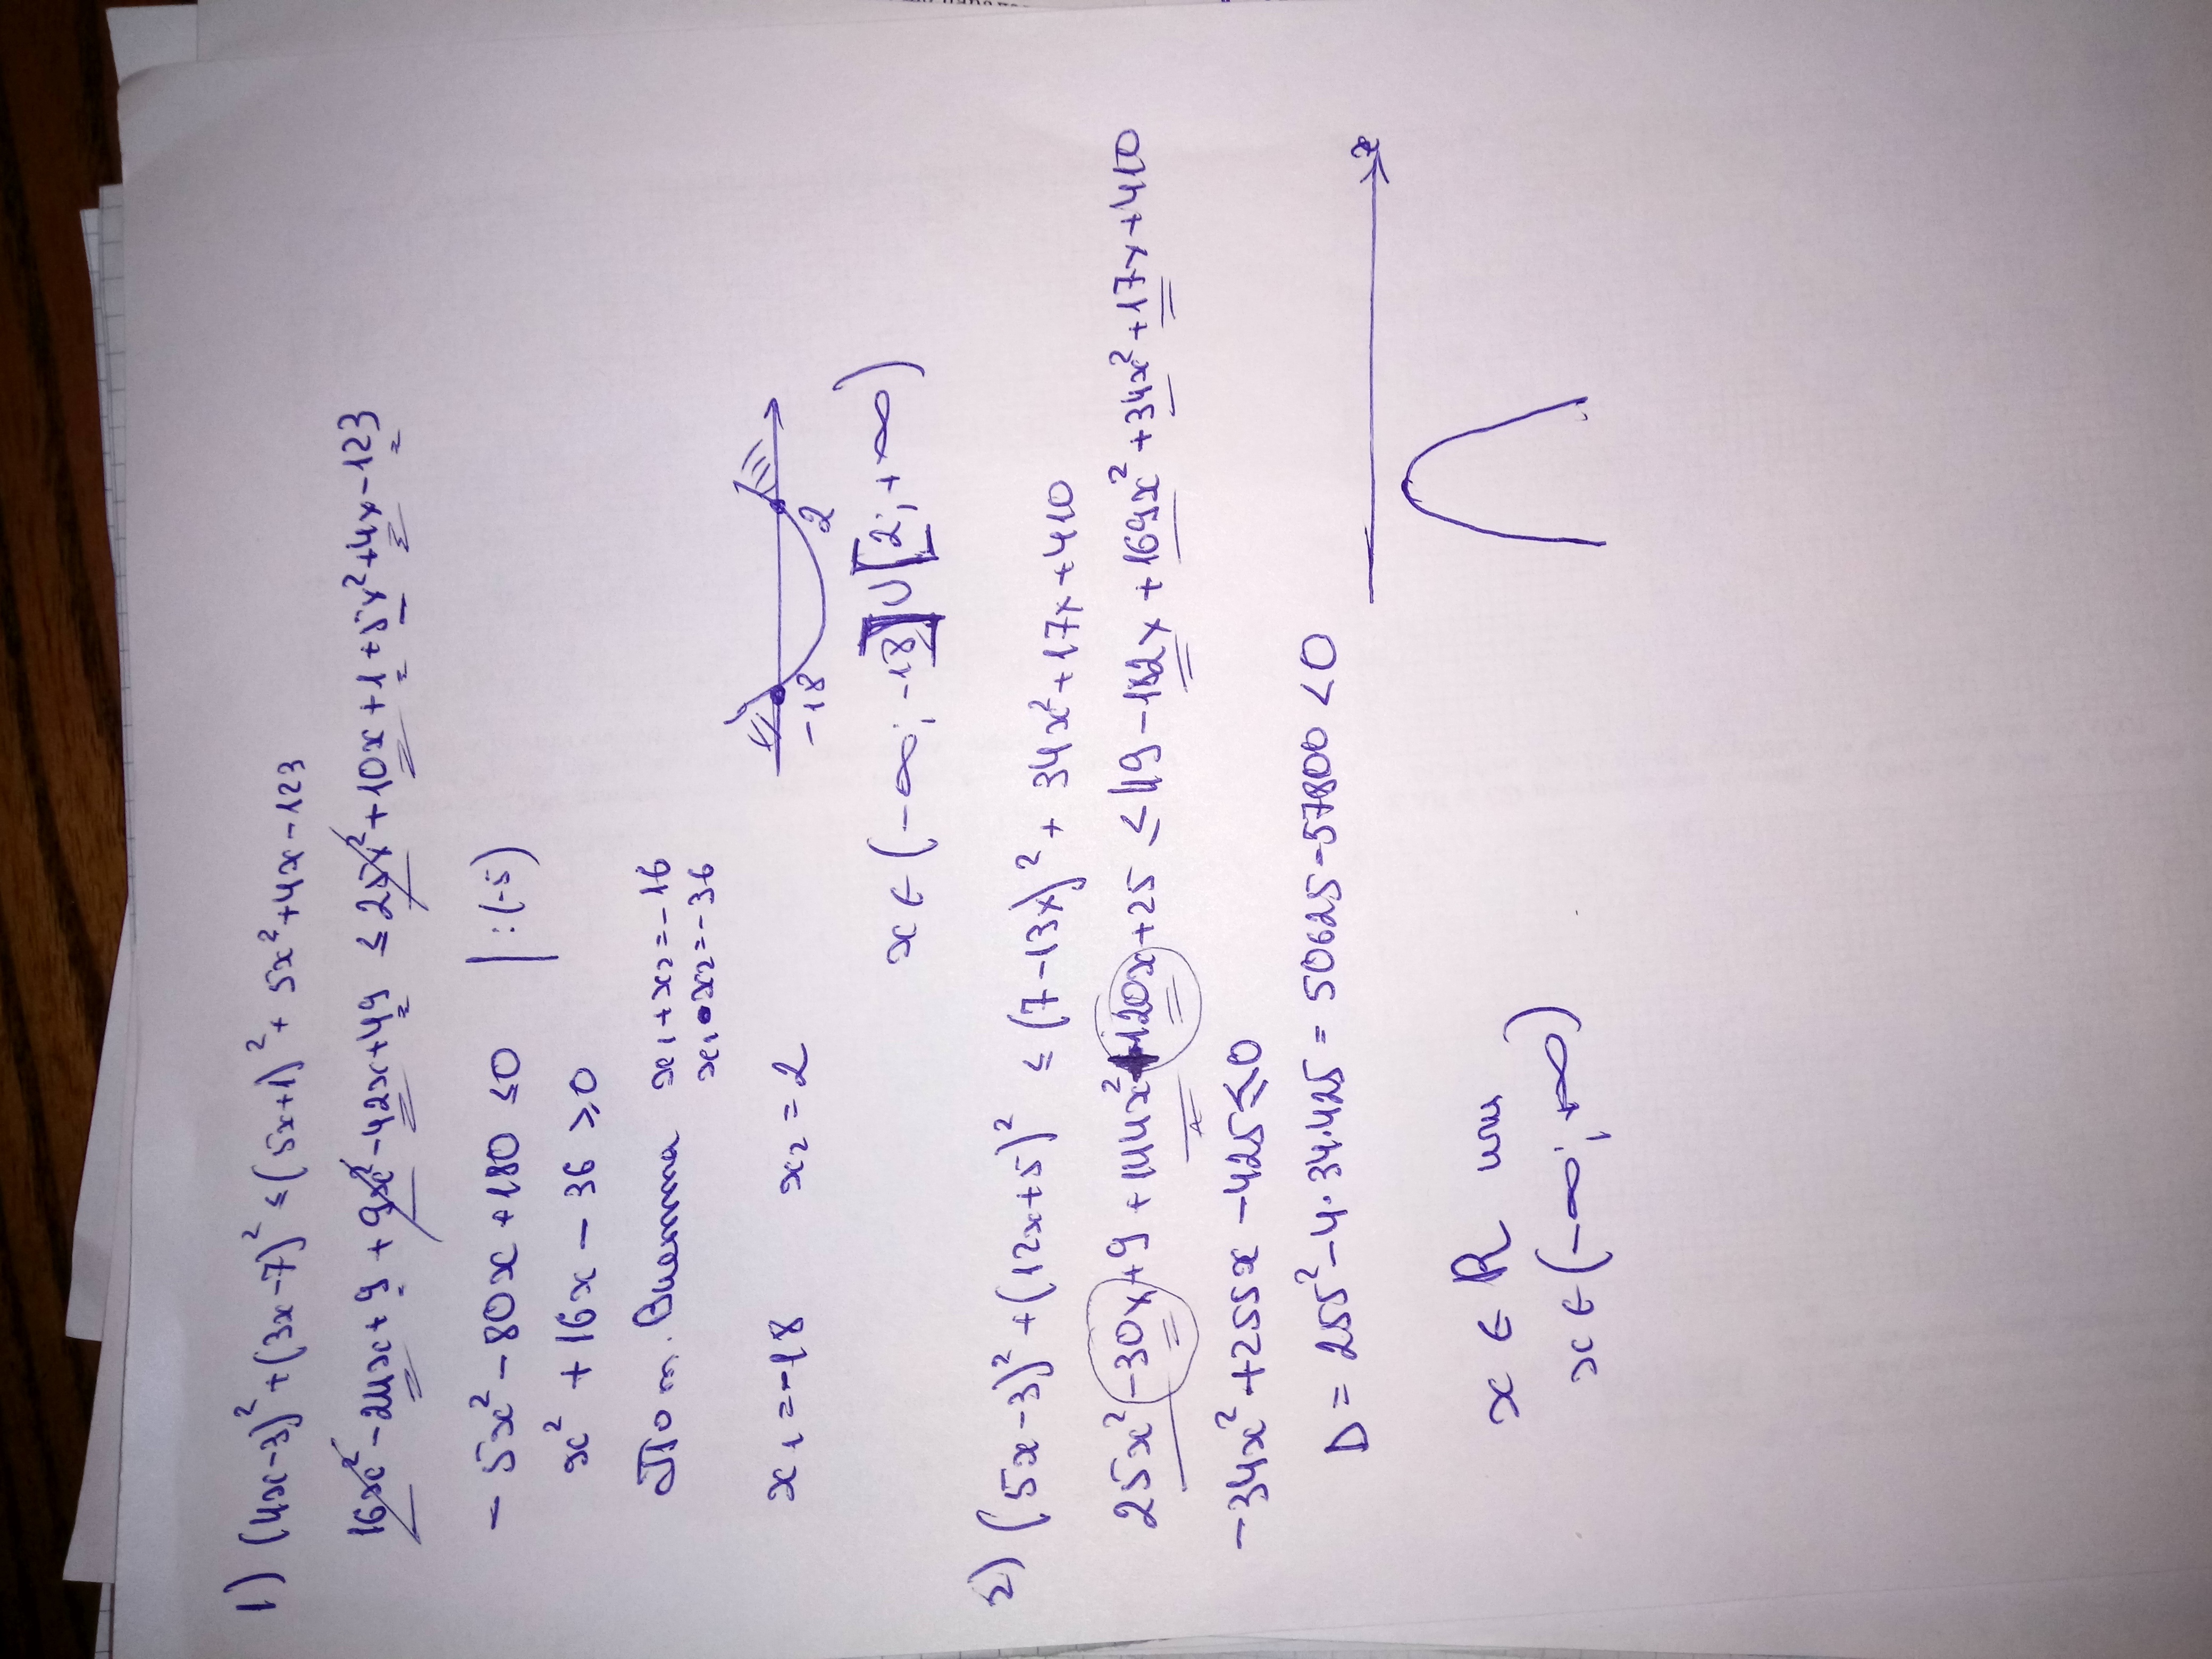 1) (4x-3)² + (3x-7)² ≤ (5x+1)² + 5x² + 4x - 123
16x² - 24x + 9 + 9x² - 42x + 49 ≤ 25x² + 10x + 1 + 5x² + 4x - 123
- 5x² - 80x + 180 ≤ 0 | : (-5)
x² + 16x - 36 ≥ 0
По т. Виета x₁ + x₂ = -16
x₁ • x₂ = -36
x₁ = -18 x₂ = 2
-18 2
x ∈ (-∞; -18] ∪ [2; +∞)
2) (5x-3)² + (12x+5)² ≤ (7-13x)² + 34x² + 17x + 410
25x² - 30x + 9 + 144x² + 120x + 25 ≤ 49 - 182x + 169x² + 34x² + 17x + 410
-34x² + 255x - 425 ≤ 0
D = 255² - 4·34·425 = 50625 - 57800 < 0
x
x ∈ R или
x ∈ (-∞; +∞)